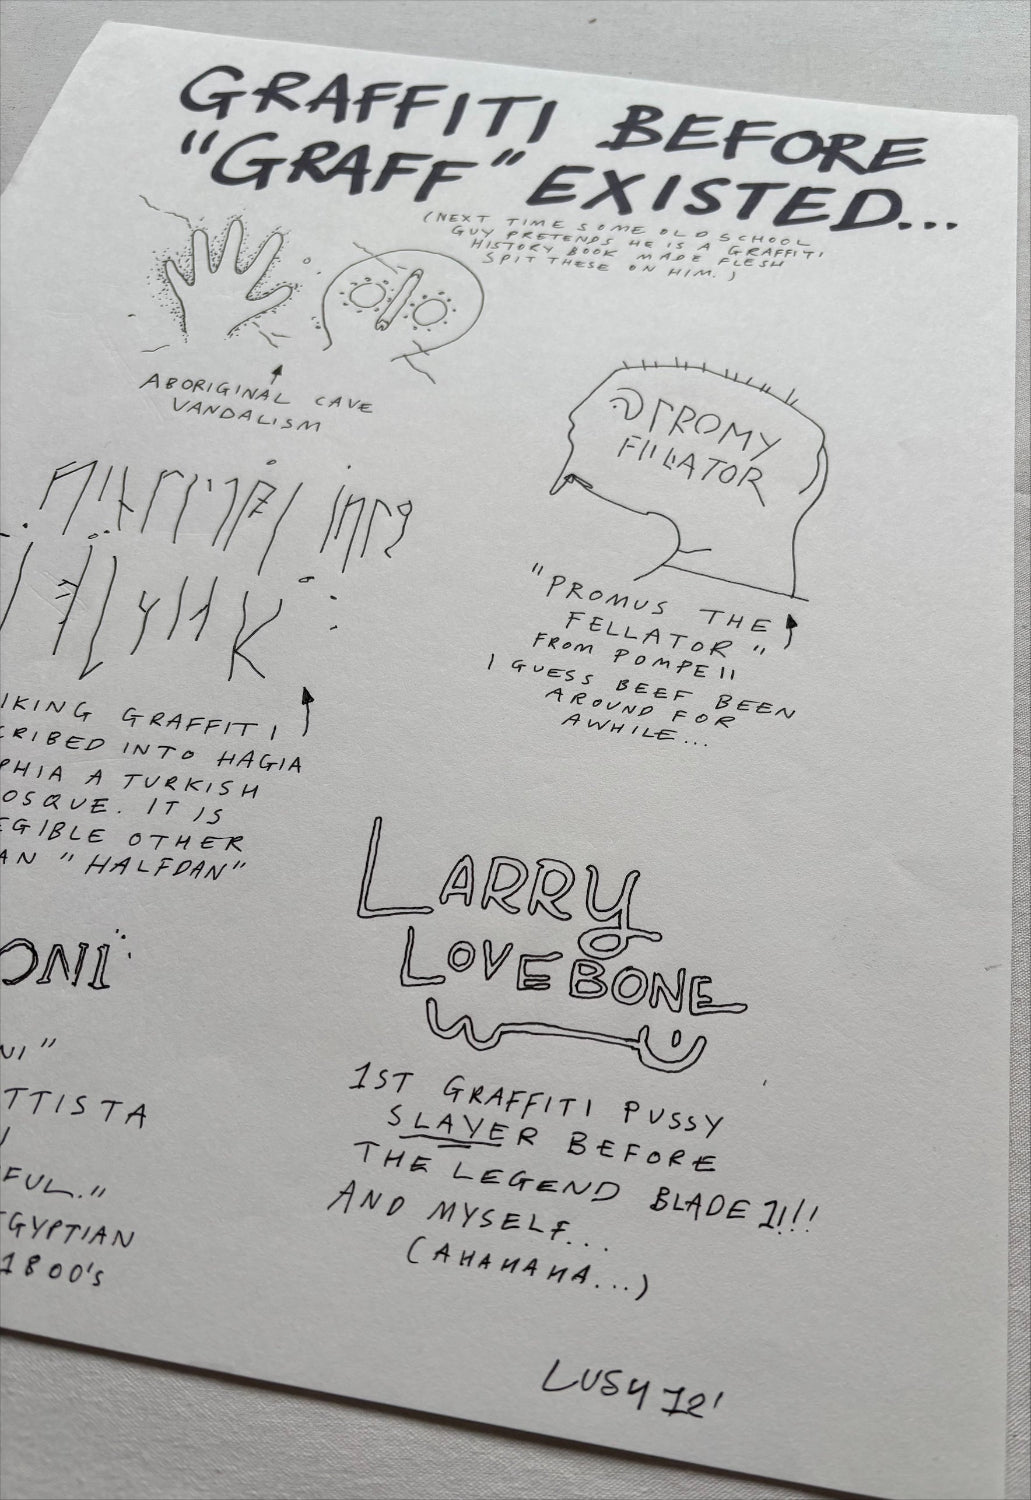 GRAFFITI BEFORE
"GRAFF" EXISTED...
(NEXT TIME SOME OLD SCHOOL
GUY PRETENDS HE IS A GRAFFITI
HISTORY BOOK MADE FLESH
SPIT THESE ON HIM.)
ABORIGINAL CAVE
VANDALISM
PROMY
FIILATOR
"PROMUS THE
FELLATOR"
FROM POMPEII
I GUESS BEEF BEEN
AROUND FOR
AWHILE...
IKING GRAFFITI
CRIBED INTO HAGIA
PHIA A TURKISH
OSQUE. IT IS
EGIBLE OTHER
AN "HALFDAN"
LARRY
LOVEBONE
1ST GRAFFITI PUSSY
SLAYER BEFORE
THE LEGEND BLADE 1!!!
AND MYSELF...
(AHAHAHA...)
ONI
NI"
TTISTA
FUL."
EGYPTIAN
1800's
LUSY 12'